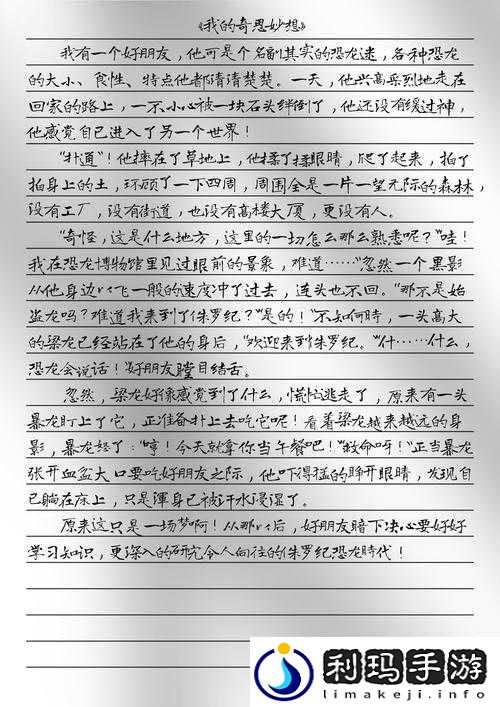 《我的奇思妙想》
我有一个好朋友，他可是个名副其实的恐龙迷，各种恐龙
的大小、食性、特点他都清清楚楚。一天，他兴高采烈地走在
回家的路上，一不小心被一块石头绊倒了，他还没有缓过神，
他感觉自己进入了另一个世界！
“扑通”！他摔在了草地上，他揉了揉眼睛，爬了起来，拍了
拍身上的土，环顾了一下四周，周围全是一片一望无际的森林，
没有工厂，没有街道，也没有高楼大厦，更没有人。
“奇怪，这是什么地方，这里的一切怎么那么熟悉呢？”哇！
我在恐龙博物馆里见过眼前的景象，难道……”忽然一个黑影
从他身边以飞一般的速度冲了过去，连头也不回。“那不是始
盗龙吗？难道我来到了侏罗纪？”“是的！”不知何時，一头高大
的梁龙已经站在了他的身后，“欢迎来到侏罗纪。”“什……什么，
恐龙会说话！”好朋友瞠目结舌。
忽然，梁龙好像感觉到了什么，慌忙逃走了，原来有一头
暴龙盯上了它，正准备扑上去吃它呢！看着梁龙越来越远的身
影，暴龙怒了：“哼！今天就拿你当午餐吧！”“救命呀！”正当暴龙
张开血盆大口要吃好朋友之际，他吓得猛的睁开眼睛，发现自
己躺在床上，只是渾身已被汗水浸湿了。
原来这只是一场梦啊！从那以后，好朋友暗下决心要好好
学习知识，更深入的研究令人向往的侏罗纪恐龙時代！
利玛手游
limakeji.info.net